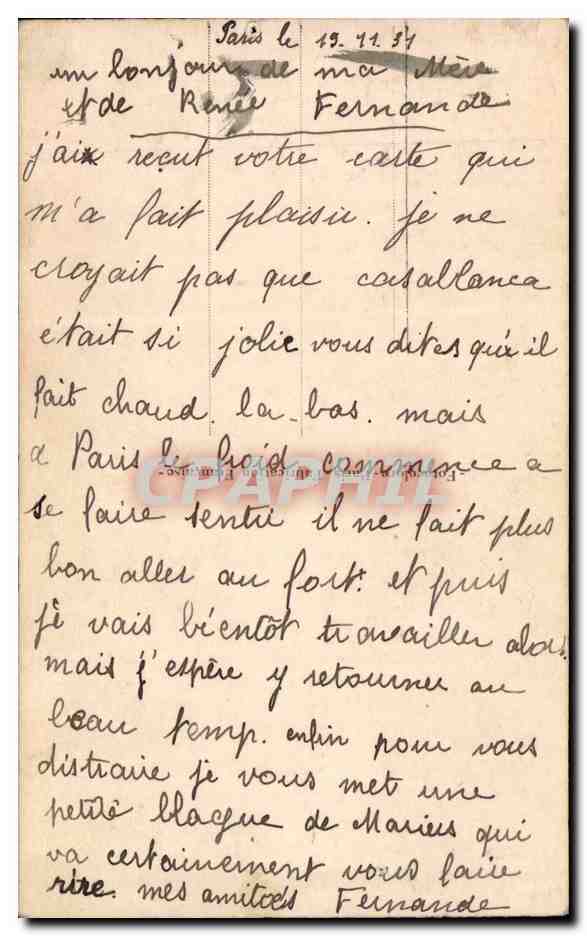 Paris le 19.11.31
un bonjour de ma Mère
et de Renée Fernande
j'ai reçut votre carte qui
m'a fait plaisir. je ne
croyait pas que casablanca
était si jolie vous dites qu'il
fait chaud. la-bas. mais
a Paris le froid commence a
se faire sentir il ne fait plus
bon aller au fort. et puis
je vais bientôt travailler alors.
mais j'espère y retourner au
beau temp. enfin pour vous
distraire je vous met une
petite blague de Marius qui
va certainement vous faire
rire. mes amitiés Fernande
CPAPHIL